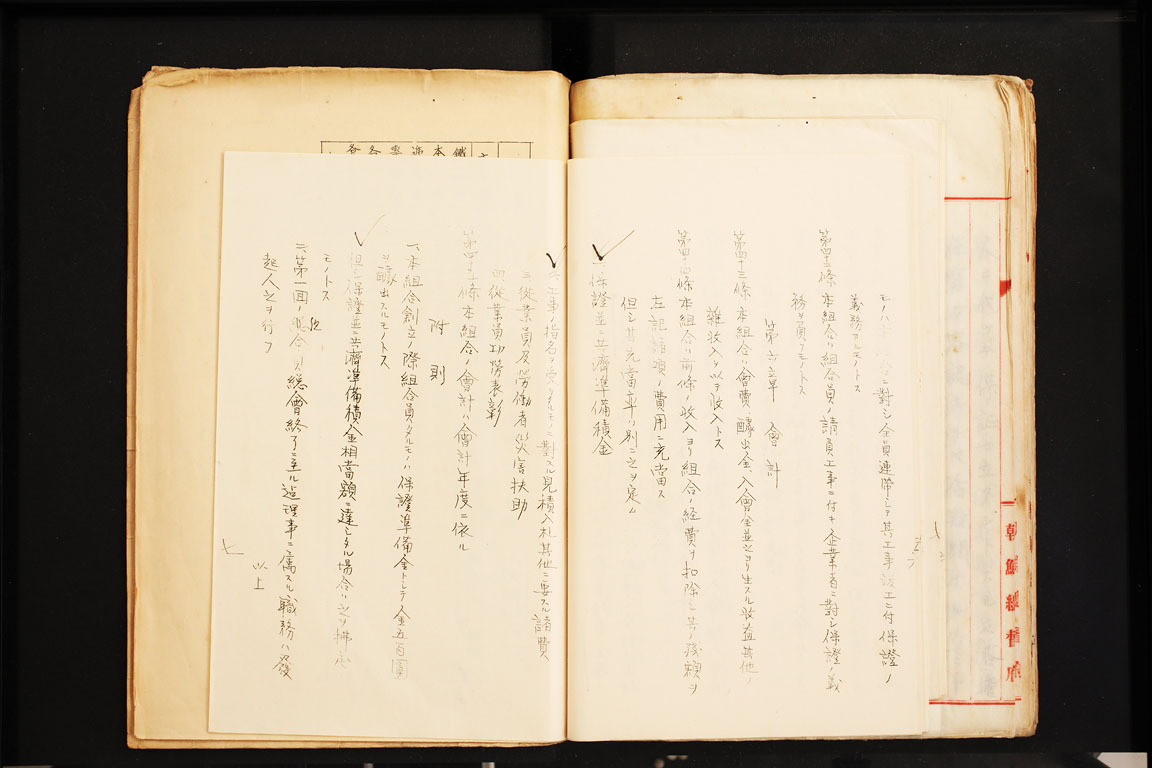 モノハ 對シ全員連帶シテ其工事竣工ニ付保證ノ
義務アルモノトス
第四十二條 本組合ハ組合員ノ請負工事ニ付キ企業者ニ對シ保證ノ義
務ヲ負フモノトス
第六章 會計
第四十三條 本組合ハ會費、醵出金、入會金並之ヨリ生スル收益其他ノ
雜收入ヲ以テ收入トス
第四十四條 本組合ハ前條ノ收入ヨリ組合ノ經費ヲ扣除シ其ノ殘額ヲ
左記諸項ノ費用ニ充當ス
但シ其充當率ハ別ニ之ヲ定ム
一、保證並ニ共濟準備積金
二、工事ノ指名ヲ受クルモノニ對スル見積入札其他ニ要スル諸費
三、從業員及勞働者災害扶助
四、從業員功勞表彰
第四十五條 本組合ノ會計ハ會計年度ニ依ル
附則
一、本組合創立ノ際組合員タルモノハ保證準備金トシテ金五百圓
ヲ醵出スルモノトス
但シ保證並ニ共濟準備積金相當額ニ達シタル場合ハ之ヲ拂戻
モノトス
二、第一回ノ總會終了ニ至ル迄理事ニ屬スル職務ハ發
起人之ヲ行フ
以上
七
朝鮮總督府